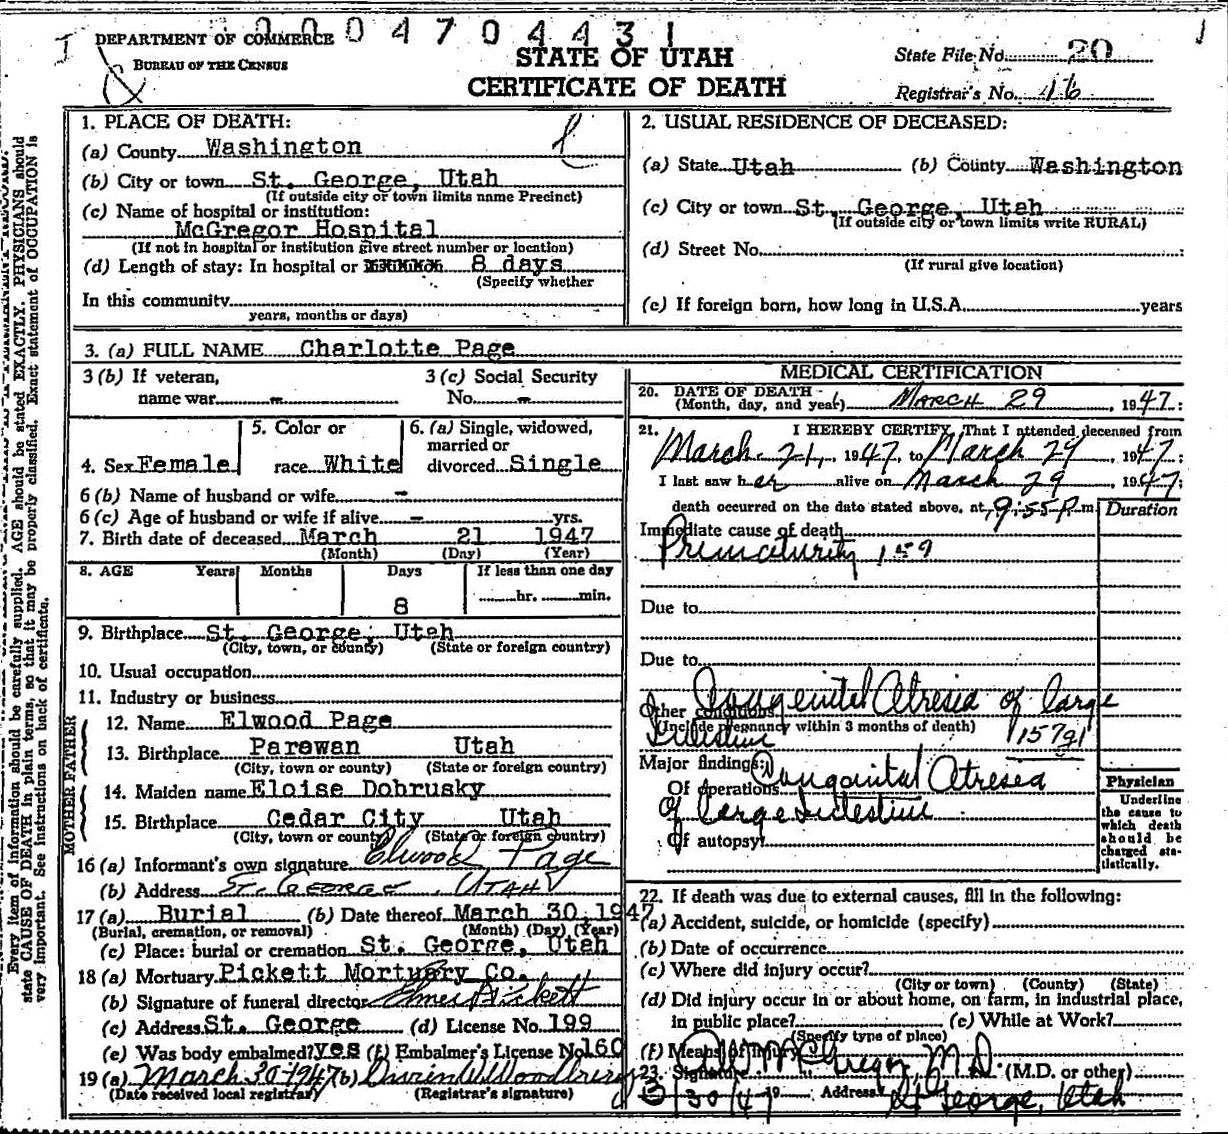 DEPARTMENT OF COMMERCE
BUREAU OF THE CENSUS
04704431
STATE OF UTAH
CERTIFICATE OF DEATH
State File No. 20
Registrar's No. 46
1. PLACE OF DEATH:
(a) County Washington
(b) City or town St. George, Utah
(If outside city or town limits name Precinct)
(c) Name of hospital or institution:
McGregor Hospital
(If not in hospital or institution give street number or location)
(d) Length of stay: In hospital or xxxxxxx 8 days
(Specify whether
In this community
years, months or days)
2. USUAL RESIDENCE OF DECEASED:
(a) State Utah (b) County Washington
(c) City or town St. George, Utah
(If outside city or town limits write RURAL)
(d) Street No.
(If rural give location)
(e) If foreign born, how long in U.S.A. years
3. (a) FULL NAME Charlotte Page
3 (b) If veteran, name war -
3 (c) Social Security No. -
4. Sex Female
5. Color or race White
6. (a) Single, widowed, married or divorced Single
6 (b) Name of husband or wife -
6 (c) Age of husband or wife if alive - yrs.
7. Birth date of deceased March 21 1947
(Month) (Day) (Year)
8. AGE Years Months Days If less than one day
8 hr. min.
9. Birthplace St. George, Utah
(City, town, or county) (State or foreign country)
10. Usual occupation
11. Industry or business
FATHER
12. Name Elwood Page
13. Birthplace Parawan Utah
(City, town or county) (State or foreign country)
MOTHER
14. Maiden name Eloise Dobrusky
15. Birthplace Cedar City Utah
(City, town or county) (State or foreign country)
16 (a) Informant's own signature Elwood Page
(b) Address St. George, Utah
17 (a) Burial (b) Date thereof March 30, 1947
(Burial, cremation, or removal) (Month) (Day) (Year)
(c) Place: burial or cremation St. George, Utah
18 (a) Mortuary Pickett Mortuary Co.
(b) Signature of funeral director Elmer Pickett
(c) Address St. George (d) License No. 199
(e) Was body embalmed? yes (f) Embalmer's License No. 160
19 (a) March 30 1947 (b)
(Date received local registrar) (Registrar's signature)
MEDICAL CERTIFICATION
20. DATE OF DEATH
(Month, day, and year) March 29, 1947
21. I HEREBY CERTIFY, That I attended deceased from
March 21, 1947, to March 29, 1947;
I last saw her alive on March 29, 1947;
death occurred on the date stated above, at 9:55 P. m.
Duration
Immediate cause of death
Prematurity 159
Due to
Due to
Other conditions Congenital Atresia of large Intestine
(Include pregnancy within 3 months of death) 157g1
Major findings:
Of operations Congenital Atresia of large Intestine
Of autopsy
Physician
Underline the cause to which death should be charged statistically.
22. If death was due to external causes, fill in the following:
(a) Accident, suicide, or homicide (specify)
(b) Date of occurrence
(c) Where did injury occur?
(City or town) (County) (State)
(d) Did injury occur in or about home, on farm, in industrial place,
in public place? (e) While at Work?
(Specify type of place)
(f) Means of injury
23. Signature McGregor, M.D. (M.D. or other)
3/30/47 19 Address St George, Utah
Every item of information should be carefully supplied. AGE should be stated EXACTLY. PHYSICIANS should
state CAUSE OF DEATH in plain terms, so that it may be properly classified. Exact statement of OCCUPATION is
very important. See instructions on back of certificate.